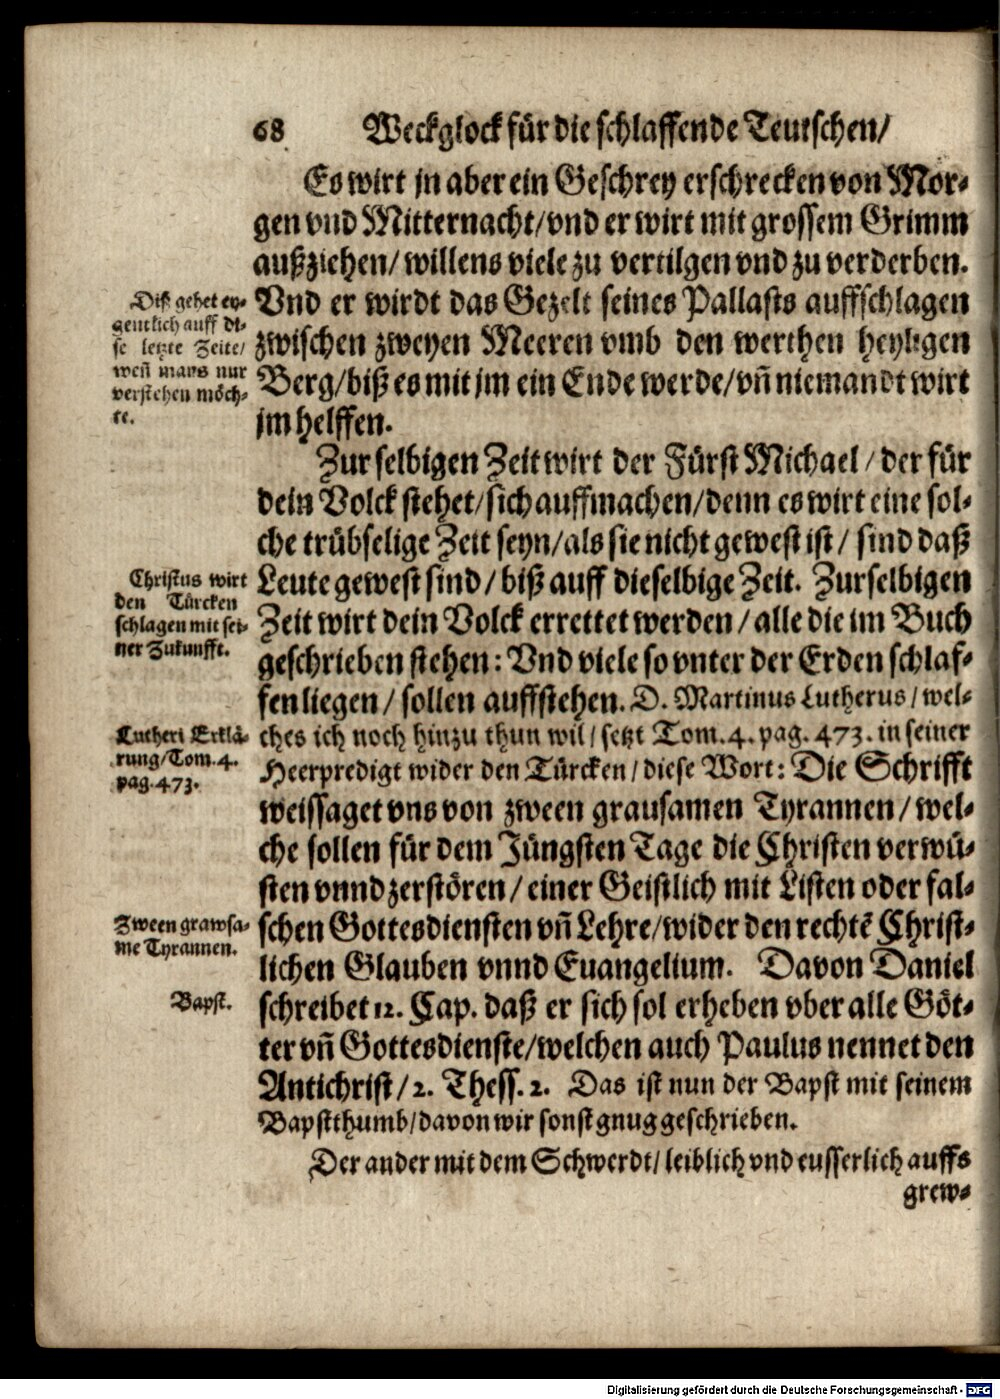 68 Weckglock für die schlaffende Teutschen/
Es wirt jn aber ein Geschrey erschrecken von Mor-
gen vnd Mitternacht/vnd er wirt mit grossem Grimm
außziehen/ willens viele zu vertilgen vnd zu verderben.
Vnd er wirdt das Gezelt seines Pallasts auffschlagen
zwischen zweyen Meeren vmb den werthen heyligen
Berg/biß es mit jm ein Ende werde/vñ niemandt wirt
jm helffen.
Diß gehet ey-
gentlich auff di-
se letzte Zeite/
weñ mans nur
verstehen möch-
te.
Zur selbigen Zeit wirt der Fürst Michael/der für
dein Volck stehet/sich auffmachen/denn es wirt eine sol-
che trübselige Zeit seyn/als sie nicht gewest ist/ sind daß
Leute gewest sind/biß auff dieselbige Zeit. Zur selbigen
Zeit wirt dein Volck errettet werden/alle die im Buch
geschrieben stehen: Vnd viele so vnter der Erden schlaf-
fen liegen/ sollen auffstehen. D. Martinus Lutherus/wel-
ches ich noch hinzu thun wil/ setzt Tom. 4. pag. 473. in seiner
Heerpredigt wider den Türcken/diese Wort: Die Schrifft
weissaget vns von zween grausamen Tyrannen/wel-
che sollen für dem Jüngsten Tage die Christen verwü-
sten vnnd zerstören/einer Geistlich mit Listen oder fal-
schen Gottesdiensten vñ Lehre/wider den rechtẽ Christ-
lichen Glauben vnnd Euangelium. Davon Daniel
schreibet 12. Cap. daß er sich sol erheben vber alle Göt-
ter vñ Gottesdienste/welchen auch Paulus nennet den
Antichrist/2. Thess. 2. Das ist nun der Bapst mit seinem
Bapstthumb/davon wir sonst gnug geschrieben.
Christus wirt
den Türcken
schlagen mit sei-
ner Zukunfft.
Lutheri Erklä-
rung/Tom. 4.
pag. 473.
Zween grawsa-
me Tyrannen.
Bapst.
Der ander mit dem Schwerdt/leiblich vnd eusserlich auffs
grew-
Digitalisierung gefördert durch die Deutsche Forschungsgemeinschaft - DFG